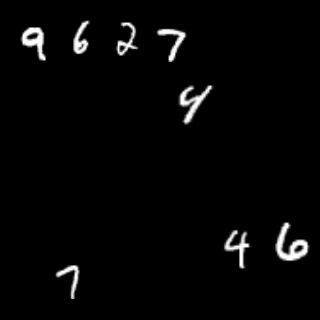 9 6 2 7
4
4 6
7